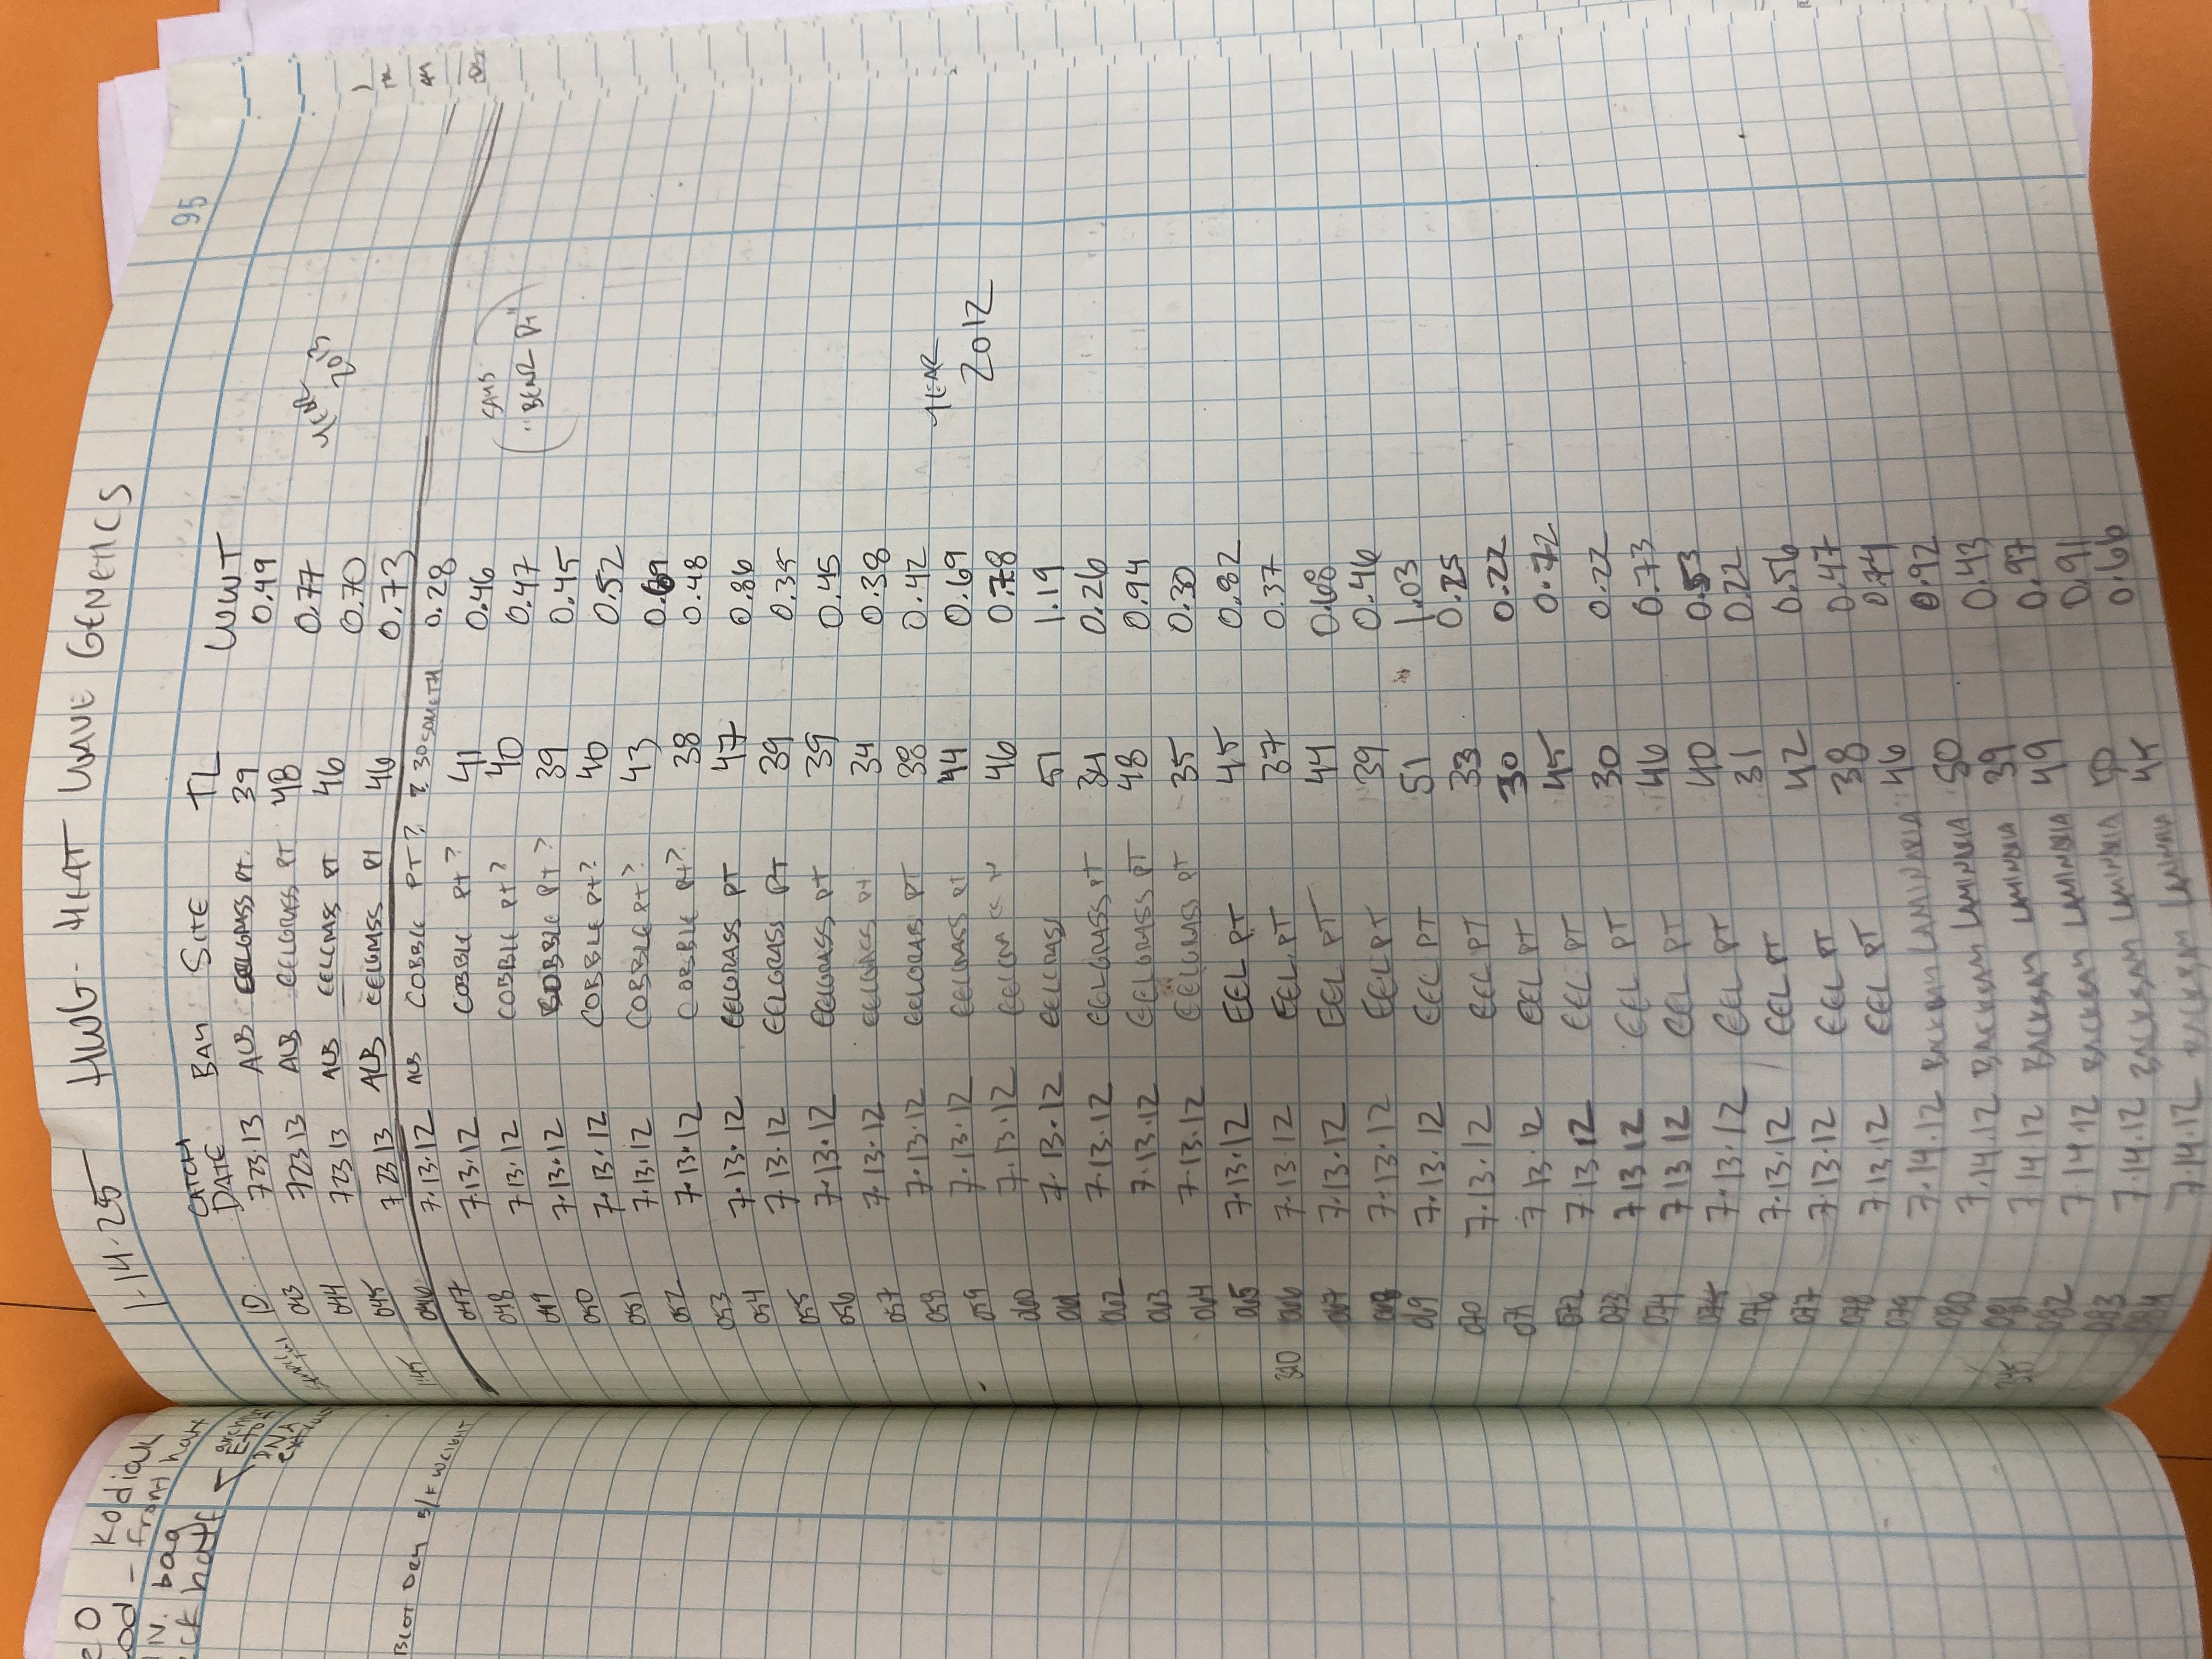 e 0 Kodiak
cod - front half
N. bag
ck half <
archive
EtOH
DNA
BLOT DRY B/F WEIGHT
1-14-25 HWG - HEAT WAVE GENETICS
95
ID CATCH DATE BAY SITE TL WWT
043 7 23.13 ALB EELGRASS PT. 39 0.49
044 7 23 13 ALB EELGRASS PT 48 0.77
045 7 23 13 ALB EELGRASS PT 46 0.70
YEAR
2013
1:45 046 7 23 13 ALB EELGRASS Pt 46 0.73
047 7.13.12 ALB COBBLE PT? ? 30 SOMETH. 0.28
048 7.13.12 COBBLE Pt? 41 0.46
049 7.13.12 COBBLE Pt? 40 0.47
(SAYS
"BEAR Pt")
050 7.13.12 COBBLE Pt? 39 0.45
051 7.13.12 COBBLE Pt? 40 0.52
052 7.13.12 COBBLE Pt? 43 0.69
053 7.13.12 COBBLE Pt? 38 0.48
054 7.13.12 EELGRASS PT 47 0.86
055 7.13.12 EELGRASS PT 39 0.35
056 7.13.12 EELGRASS Pt 39 0.45
057 7.13.12 EELGRASS Pt 34 0.38
058 7.13.12 EELGRASS PT 38 0.42
YEAR
2012
059 7.13.12 EELGRASS Pt 44 0.69
060 7.13.12 EELGRASS Pt 46 0.78
061 7.13.12 EELGRASS 51 1.19
062 7.13.12 EELGRASS PT 34 0.26
063 7.13.12 EELGRASS PT 48 0.94
064 7.13.12 EELGRASS PT 35 0.30
065 7.13.12 EEL PT 45 0.82
320 066 7.13.12 EEL PT 37 0.37
067 7.13.12 EEL PT 44 0.68
068 7.13.12 EEL PT 39 0.46
069 7.13.12 EEL PT 51 1.03
070 7.13.12 EEL PT 33 0.25
071 7 13.12 EEL PT 30 0.22
072 7 13 12 EEL PT 45 0.72
073 7 13 12 EEL PT 30 0.22
074 7 13 12 EEL PT 46 0.73
075 7.13.12 EEL PT 40 0.53
076 7.13.12 EEL PT 31 0.22
077 7.13.12 EEL PT 42 0.56
078 7.13.12 EEL PT 38 0.47
079 7.14.12 BACKBAY LAMINARIA 46 0.74
080 7.14.12 BACKBAY LAMINARIA 50 0.92
345 081 7 14 12 BACKBAY LAMINARIA 39 0.43
082 7.14.12 BACKBAY LAMINARIA 49 0.97
083 7.14.12 BACKBAY LAMINARIA 50 0.91
084 7.14.12 BACKBAY LAMINARIA 45 0.66